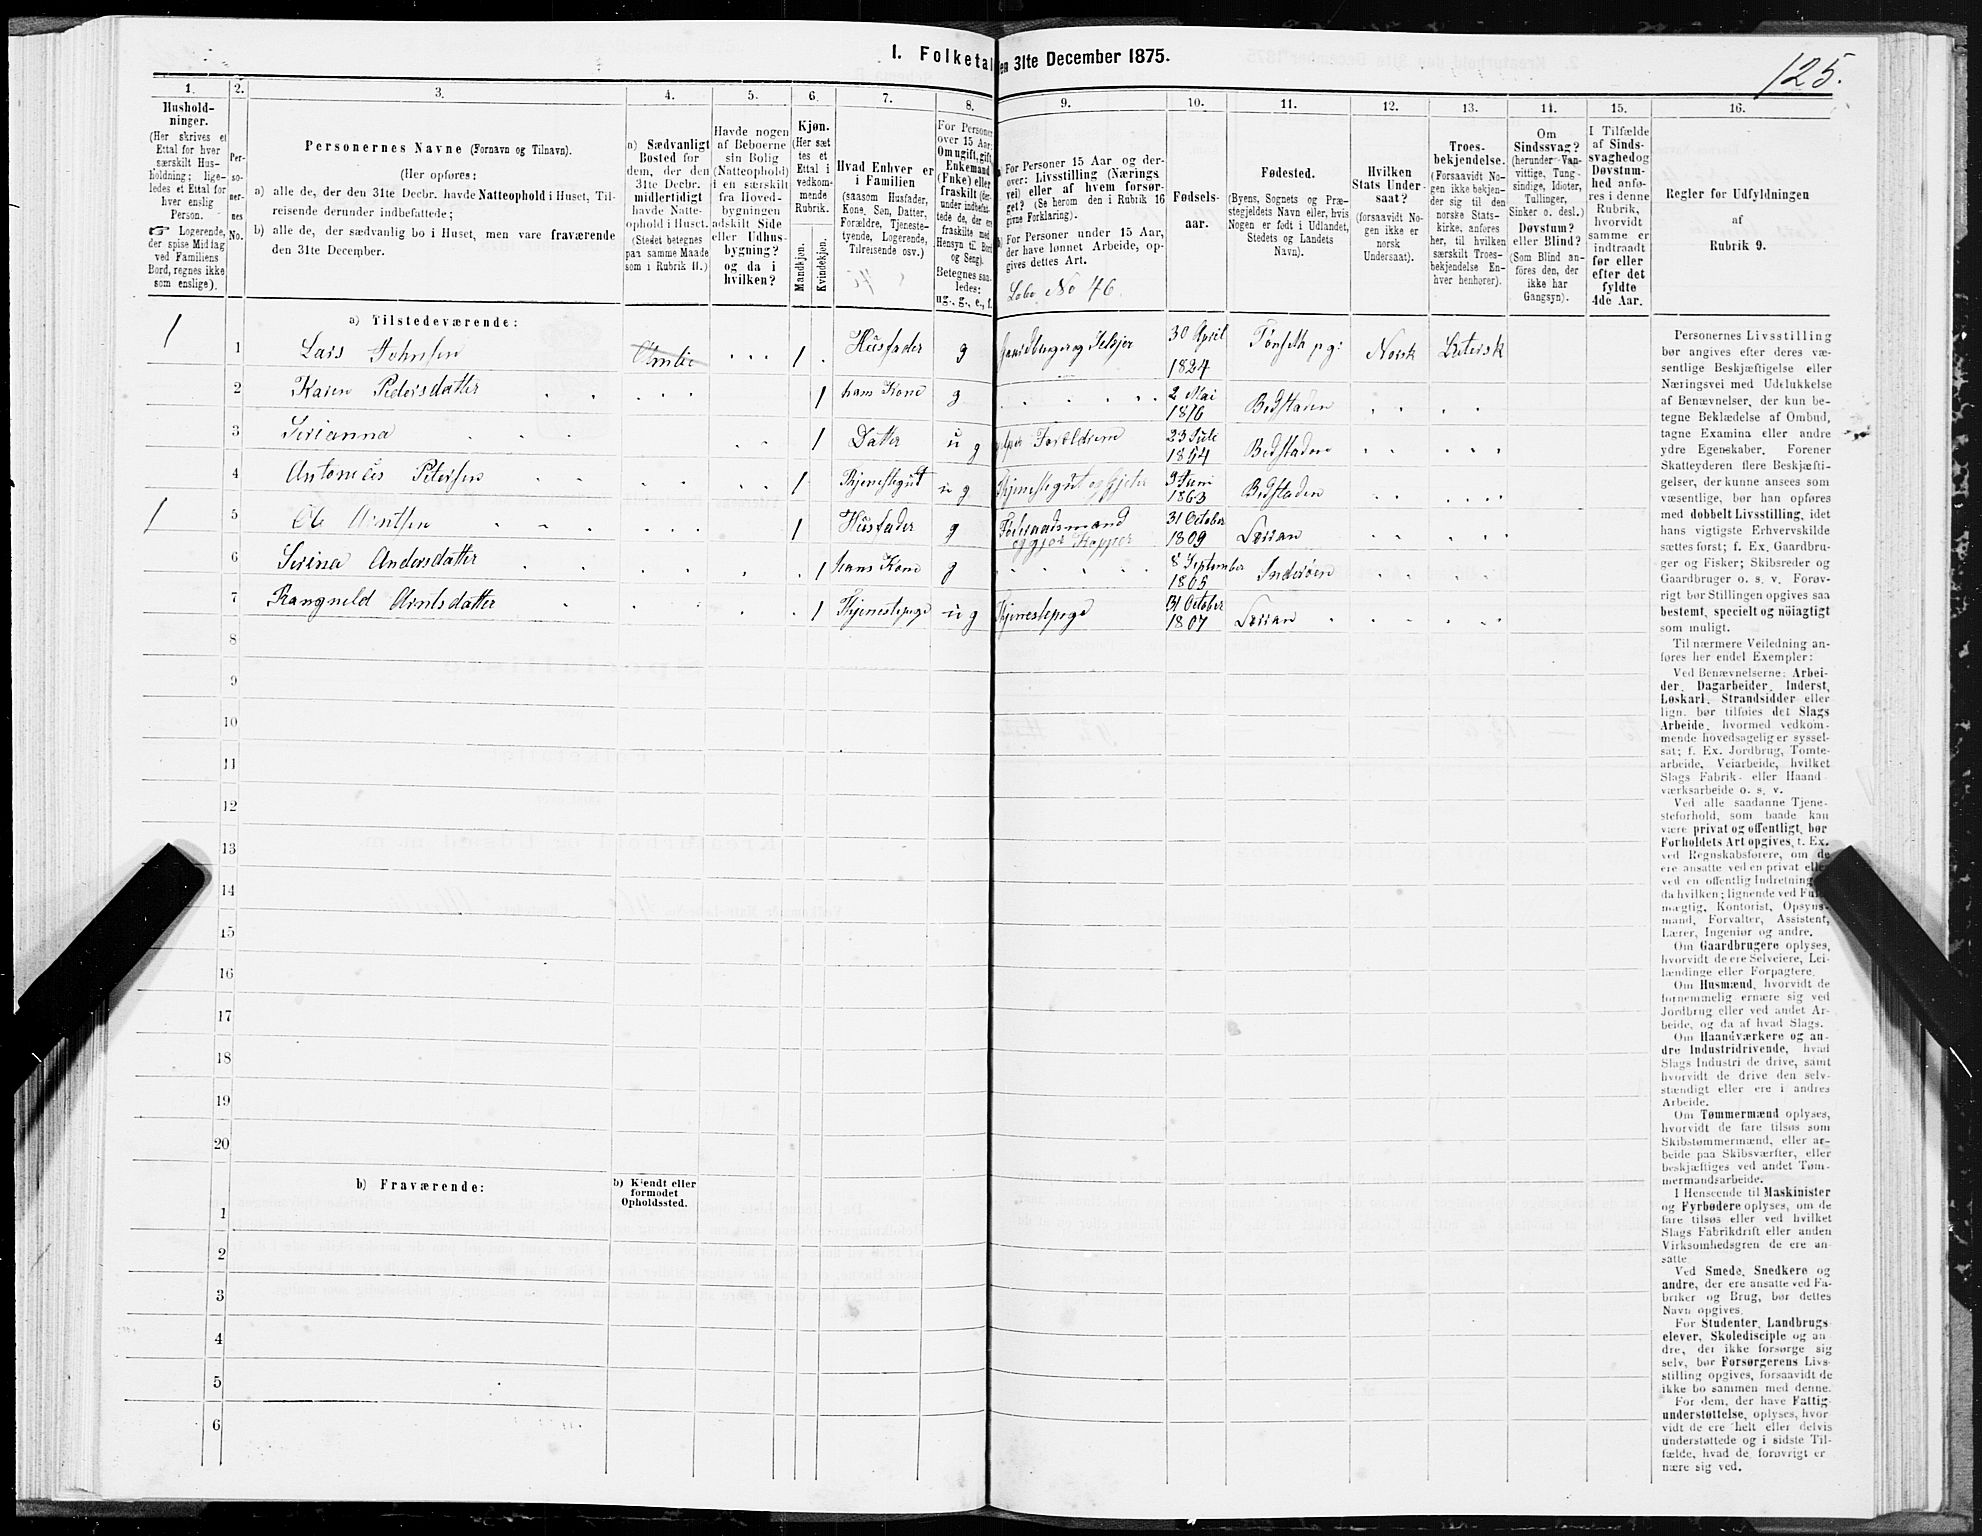 125.
I. Folketal den 31te December 1875.
1. 2. 3. 4. 5. 6. 7. 8. 9. 10. 11. 12. 13. 14. 15. 16.
Hushold-
ninger.
(Her skrives et
Ettal for hver
særskilt Hus-
holdning; lige-
ledes et Ettal for
hver enslig
Person.
☞ Logerende,
der spise Middag
ved Familiens
Bord, regnes ikke
som enslige).
Per-
so-
ner-
nes
No.
Personernes Navne (Fornavn og Tilnavn).
(Her opføres:
a) alle de, der den 31te Decbr. havde Natteophold i Huset, Til-
reisende derunder indbefattede;
b) alle de, der sædvanlig bo i Huset, men vare fraværende
den 31te December.
a) Sædvanligt
Bosted for
dem, der den
31te Decbr.
midlertidigt
havde Natte-
ophold i Huset.
(Stedet betegnes
paa samme Maade
som i Rubrik 11.)
Havde nogen
af Beboerne
sin Bolig
(Natteophold)
i en særskilt
fra Hoved-
bygningen
adskilt Side
eller Udhus-
bygning?
og da i
hvilken?
Kjøn.
(Her sæt
tes et
Ettal i
vedkom-
mende
Rubrik.
Mandkjøn.
Kvindekjøn.
Hvad Enhver er
i Familien
(saasom Husfader,
Kone, Søn, Datter,
Forældre, Tjeneste-
tyende, Logerende,
Tilreisende osv.)
For Personer
over 15 Aar:
Om ugift, gift,
Enkemand
(Enke) eller
fraskilt
Betegnes saa-
ledes:
ug., g., e., f.
a) For Personer 15 Aar og der-
over: Livsstilling (Nærings
vei) eller af hvem forsør-
get? (Se herom den i Rubrik 16
givne Forklaring).
b) For Personer under 15 Aar,
der have lønnet Arbeide, op-
gives dettes Art.
Lobe No 46.
Fødsels-
aar.
Fødested.
(Byens, Sognets og Præ-
stegjeldets Navn eller, hvis
Nogen er født i Udlandet,
Stedets og Landets
Navn).
Hvilken
Stats Under-
saat?
(forsaavidt No-
gen ikke er
norsk
Undersaat).
Troes-
bekjendelse.
(Forsaavidt No-
gen ikke bekjen-
der sig til den
norske Stats-
kirke, anføres
her, til hvilken
særskilt Troes-
bekjendelse En-
hver henhører).
Om
Sindssvag?
(herunder Van-
vittige, Tung-
sindige, Idioter,
Tullinger,
Sinker o. desl.)
Døvstum?
eller Blind?
(Som Blind an-
føres den, der
ikke har
Gangsyn).
I Tilfælde
af Sinds-
svaghed og
Døvstum-
hed anfø-
res i denne
Rubrik,
hvorvidt
samme er
indtraadt
før eller
efter det
fyldte
4de Aar.
Regler for Udfyldningen
af
Rubrik 9.
a) Tilstedeværende:
1 1 Lars Johnsen 1 Husfader g Gaardbruger og Selvejer 30 April 1824 Norsk Lutersk
2 Karen Pedersdatter 1 hans Kone g 2 Mai 1816 Bedstaden
3 Serianna 1 Datter u g Forældrene 1854 Bedstaden
4 Petersen 1 Tjenestegut u g Tjenestegut og Gjeter 9 Juni 1863 Bedstaden
1 5 Ole Arntsen 1 Husfader g Føderaadsmand 31 October 1809
6 Serina Andersdatter 1 hans Kone g 8 September 1805 Inderøen
7 Arntsdatter 1 Tjenestepige u g Tjenestepige 31 October 1807
8
9
10
11
12
13
14
15
16
17
18
19
20
b) Fraværende:
b) Kjendt eller
formodet
Opholdssted.
1
2
3
4
5
6
Personernes Livsstilling
bør angives efter deres væ-
sentlige Beskjæftigelse eller
Næringsvei med Udelukkelse
af Benævnelser, der kun be-
tegne Beklædelse af Ombud,
tagne Examina eller andre
ydre Egenskaber. Forener
Skatteyderen flere Beskjæfti-
gelser, der kunne ansees som
væsentlige, bør han opføres
med dobbelt Livsstilling, idet
hans vigtigste Erhvervskilde
sættes først; f. Ex. Gaardbru-
ger og Fisker; Skibsreder og
Gaardbruger o. s. v. Forøv-
rigt bør Stillingen opgives saa
bestemt, specielt og nöiagtigt
som muligt.
Til nærmere Veiledning an-
føres her endel Exempler:
Ved Benævnelserne: Arbei-
der, Dagarbeider, Inderst,
Løskarl, Strandsidder eller
lign. bør tilføies det Slags
Arbeide, hvormed vedkom-
mende hovedsagelig er syssel-
sat; f. Ex. Jordbrug, Tomte-
arbeide, Veiarbeide, hvilket
Slags Fabrik- eller Haand-
værksarbeide o. s. v.
Ved alle saadanne Tjene-
steforhold, som baade kan
være privat og offentligt, bør
Forholdets Art opgives, f. Ex.
ved Regnskabsførere, om de
ere ansatte ved en privat eller
ved en offentlig Indretning
da hvilken; lignende ved Fuld-
mægtig, Kontorist, Opsyns-
mand, Forvalter, Assistent,
Lærer, Ingeniør og andre.
Om Gaardbrugere oplyses,
hvorvidt de ere Selveiere, Lei-
lændinge eller Forpagtere.
Om Husmænd, hvorvidt de
fornemmelig ernære sig ved
Jordbrug eller ved andet Ar-
beide, og da af hvad Slags.
Om Haandværkere og an-
dre Industridrivende, hvad
Slags Industri de drive, samt
hvorvidt de drive den selv-
stændigt eller ere i andres
Arbeide.
Om Tømmermænd oplyses,
hvorvidt de fare tilsøs som
Skibstømmermænd, eller ar-
beide paa Skibsværfter, eller
beskjæftiges ved andet Tøm-
mermandsarbeide.
I Henseende til Maskinister
og Fyrbødere oplyses, om de
fare tilsøs eller ved hvilket
Slags Fabrikdrift eller anden
Virksomhedsgren de ere an-
satte.
Ved Smede, Snedkere og
andre, der ere ansatte ved Fa-
briker og Brug, bør dettes
Navn opgives.
For Studenter, Landbrugs-
elever, Skoledisciple og an-
dre, der ikke forsørge sig
selv, bør Forsørgerens Livs-
stilling opgives, forsaavidt de
ikke bo sammen med denne.
For dem, der have Fattig-
understøttelse, oplyses, hvor-
vidt de ere helt eller delvis
understøttede og i sidste Til-
fælde, hvad de forøvrigt er-
nære sig ved.